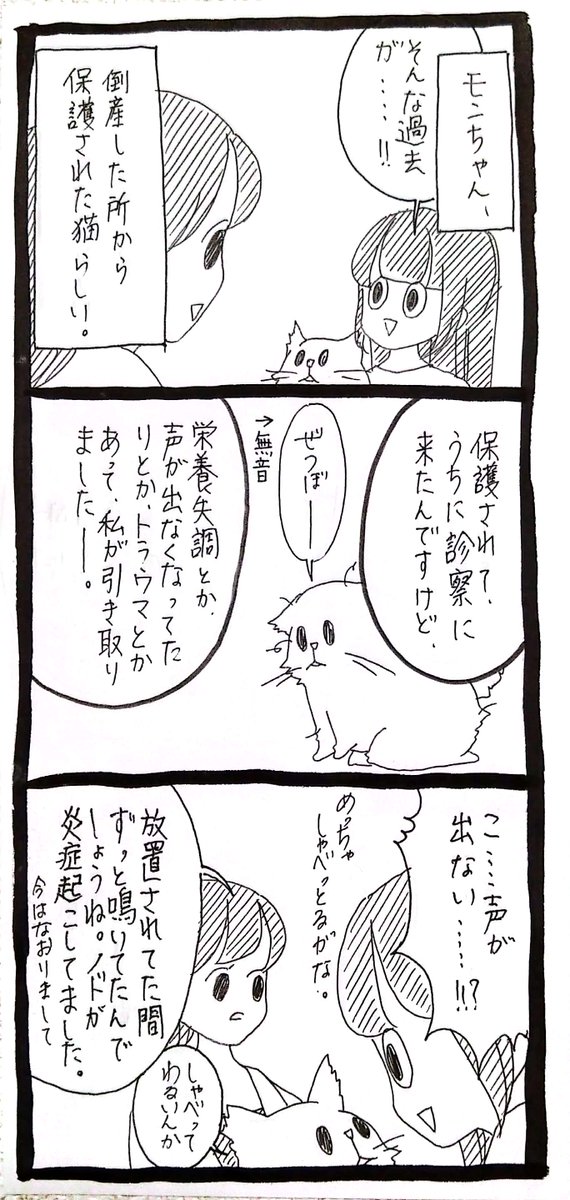 モンちゃん、
そんな過去
が・・・・!!
倒産した所から
保護された猫らしい。
保護されて、
うちに診察に
来たんですけど、
ぜつぼー
→無音
栄養失調とか、
声が出なくなってた
りとか、トラウマとか
あって、私が引き取り
ましたー。
こ・・・・声が
出ない・・・・・!!?
めっちゃ
しゃべっとるがな。
放置されてた間
ずっと鳴いてたんで
しょうね。ノドが
炎症起こしてました。
今はなおりまして
しゃべって
わるいんか